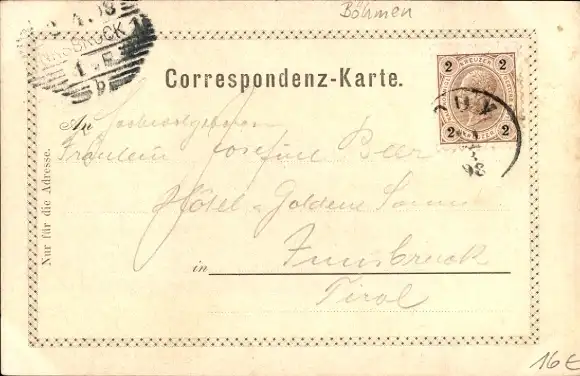 Böhmen
4.98
INNSBRUCK 1
1
Correspondenz-Karte.
2 KREUZER 2
2 KREUZER 2
98
An Hochwohlgeboren
Fräulein Josefine Beer
Hôtel Goldene Sonne
in Innsbruck
Tirol
Nur für die Adresse.
16€